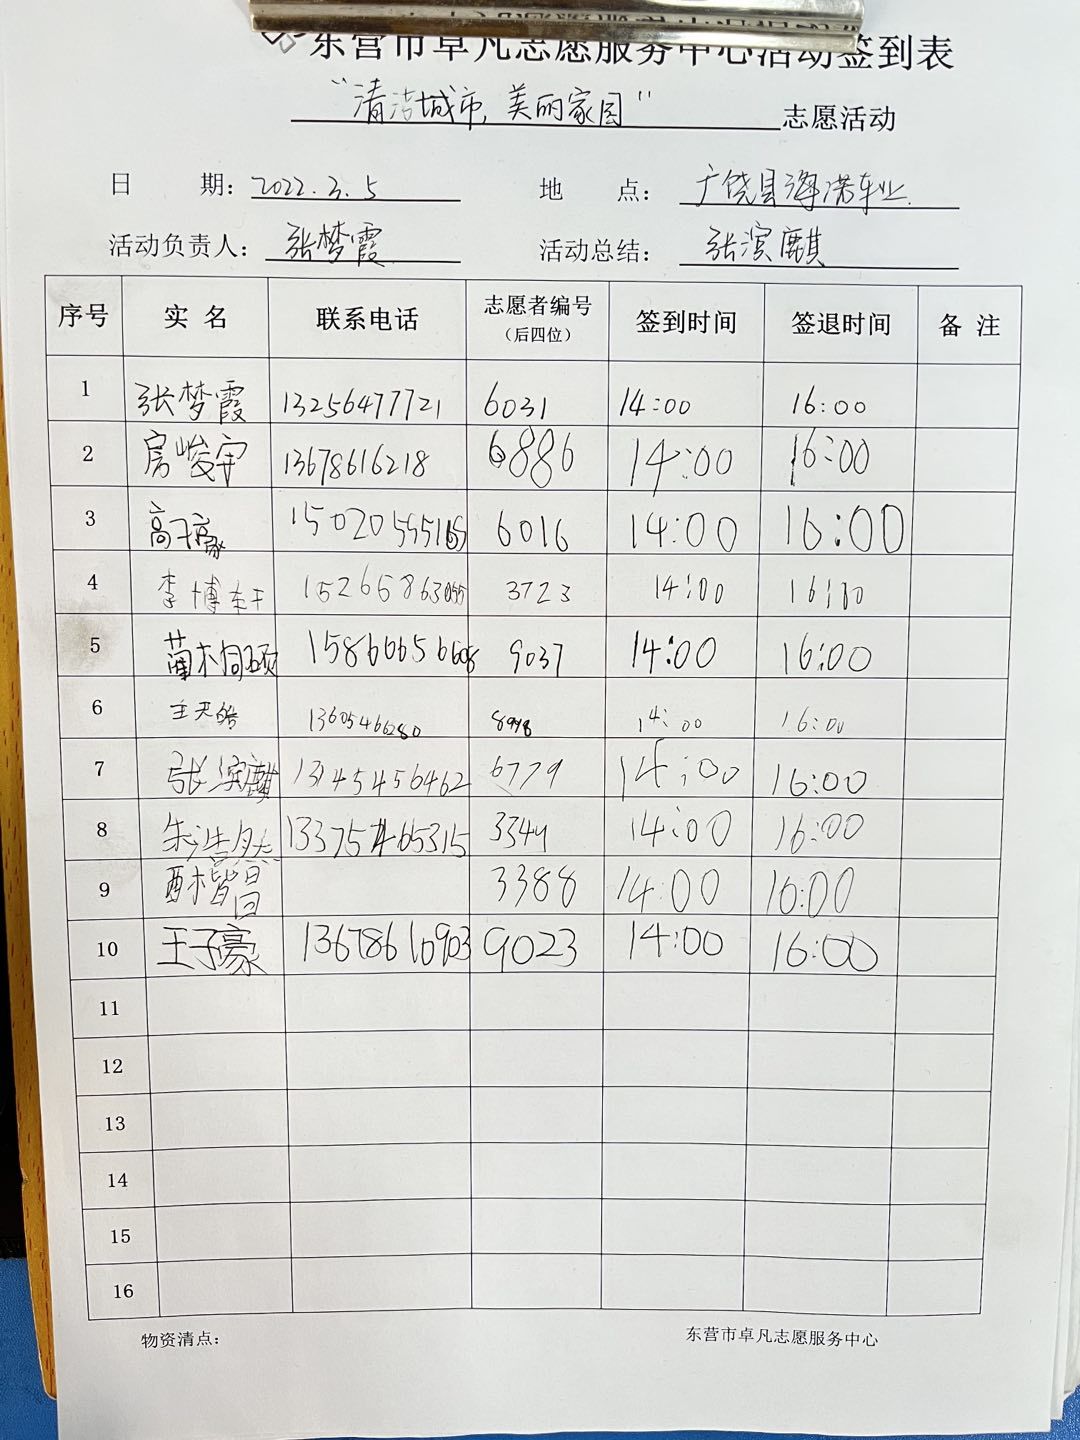 东营市卓凡志愿服务中心活动签到表
“清洁城市,美丽家园” 志愿活动
日 期: 2022.3.5 地 点: 广饶县海诺车业
活动负责人: 张梦霞 活动总结: 张滨麒
序号 实 名 联系电话 志愿者编号 (后四位) 签到时间 签退时间 备 注
1 张梦霞 13256477721 6031 14:00 16:00
2 房峻宇 13678616218 6886 14:00 16:00
3 高子豪 6016 14:00 16:00
4 李博轩 15265863055 3723 14:00
5 9037 14:00 16:00
6 王天皓 13605466280 14:00 16:00
7 张滨麒 6779 14:00 16:00
8 朱浩然 3344 14:00 16:00
9 3388 14:00 16:00
10 王子豪 13678610903 9023 14:00 16:00
11
12
13
14
15
16
物资清点: 东营市卓凡志愿服务中心